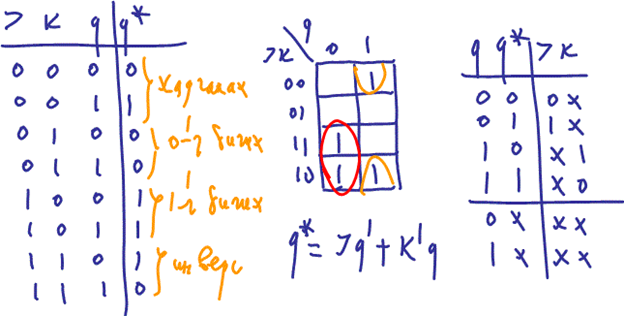 J K q q*
0 0 0 0
хадгалах
0 0 1 1
0 1 0 0
0-г бичих
0 1 1 0
1 0 0 1
1-г бичих
1 0 1 1
1 1 0 1
инверс
1 1 1 0
q
JK 0 1
00 1
01
11 1
10 1 1
q* = Jq' + K'q
q q* J K
0 0 0 x
0 1 1 x
1 0 x 1
1 1 x 0
0 x x x
1 x x x